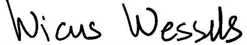 Wicus Wessels